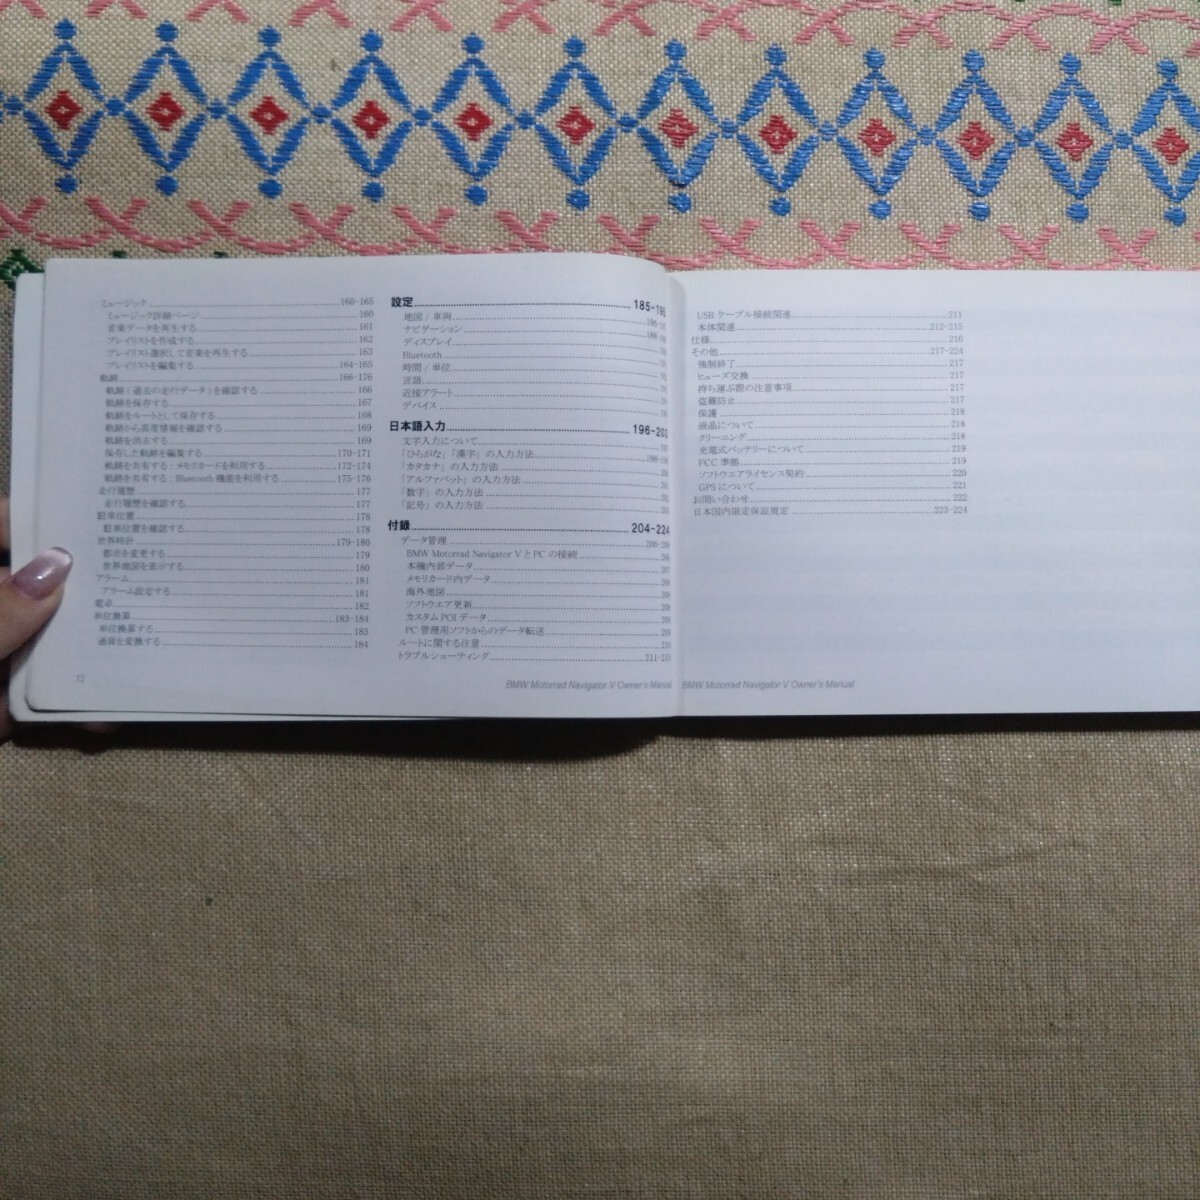 ミュージック 160-165
ミュージック詳細ページ 160
音楽データを再生する 161
プレイリストを作成する 162
プレイリスト選択して音楽を再生する 163
プレイリストを編集する 164-165
軌跡 166-176
軌跡(過去の走行データ)を確認する 166
軌跡を保存する 167
軌跡をルートとして保存する 168
軌跡から高度情報を確認する 169
軌跡を消去する 169
保存した軌跡を編集する 170-171
軌跡を共有する:メモリカードを利用する 172-174
軌跡を共有する:Bluetooth 機能を利用する 175-176
走行履歴 177
走行履歴を確認する 177
駐車位置 178
駐車位置を確認する 178
世界時計 179-180
都市を変更する 179
世界地図を表示する 180
アラーム 181
アラーム設定する 181
電卓 182
単位換算 183-184
単位換算する 183
通貨を変換する 184
12
設定 185-195
地図 / 車両
ナビゲーション
ディスプレイ
Bluetooth
時間 / 単位
言語
近接アラート
デバイス
日本語入力 196-203
文字入力について
「ひらがな」「漢字」の入力方法
「カタカナ」の入力方法
「アルファベット」の入力方法
「数字」の入力方法
「記号」の入力方法
付録 204-224
データ管理
BMW Motorrad Navigator V と PC の接続
本機内部データ
メモリカード内データ
海外地図
ソフトウエア更新
カスタム POI データ
PC 管理用ソフトからのデータ転送
ルートに関する注意
トラブルシューティング 211-215
BMW Motorrad Navigator V Owner's Manual
USB ケーブル接続関連 211
本体関連 212-215
仕様 216
その他 217-224
強制終了 217
ヒューズ交換 217
持ち運ぶ際の注意事項 217
盗難防止 217
保護 218
液晶について 218
クリーニング 218
充電式バッテリーについて 219
FCC 準拠 219
ソフトウエアライセンス契約 220
GPS について 221
お問い合わせ 222
日本国内限定保証規定 223-224
BMW Motorrad Navigator V Owner's Manual